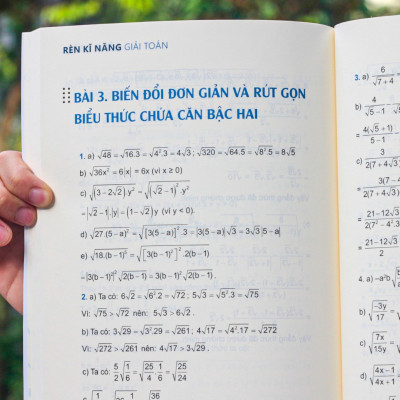 RÈN KĨ NĂNG GIẢI TOÁN
BÀI 3. BIẾN ĐỔI ĐƠN GIẢN VÀ RÚT GỌN
BIỂU THỨC CHỨA CĂN BẬC HAI
1. a) √48 = √16.3 = √4².3 = 4√3; √320 = √64.5 = √8².5 = 8√5
b) √36x² = 6|x| = 6x (vì x ≥ 0)
c) √(3-2√2).y² = √(√2-1)².y²
=|√2-1|.|y| = (1-√2)y (vì y < 0).
d) √27.(5-a)² = √[3(5-a)]².3 = |3(5-a)|√3 = 3√3|5-a|
e) √18.(b-1)⁵ = √[3(b-1)²]².2(b-1)
=|3(b-1)²|.√2(b-1) = 3(b-1)².√2(b-1).
2. a) Ta có: 6√2 = √6².2 = √72; 5√3 = √5².3 = √75
Vì: √75 > √72 nên: 5√3 > 6√2.
b) Ta có: 3√29 = √3².29 = √261; 4√17 = √4².17 = √272
Vì: √272 > √261 nên: 4√17 > 3√29.
c) Ta có: 5/2√1/6 = √25/4.1/6 = √25/24
3. a) 6/√7+4
b) 4/√5-1
= 4(√5+1)/5-1
c) 3/2(7+4√3)
d) √-3y/17
e) √7x/15y